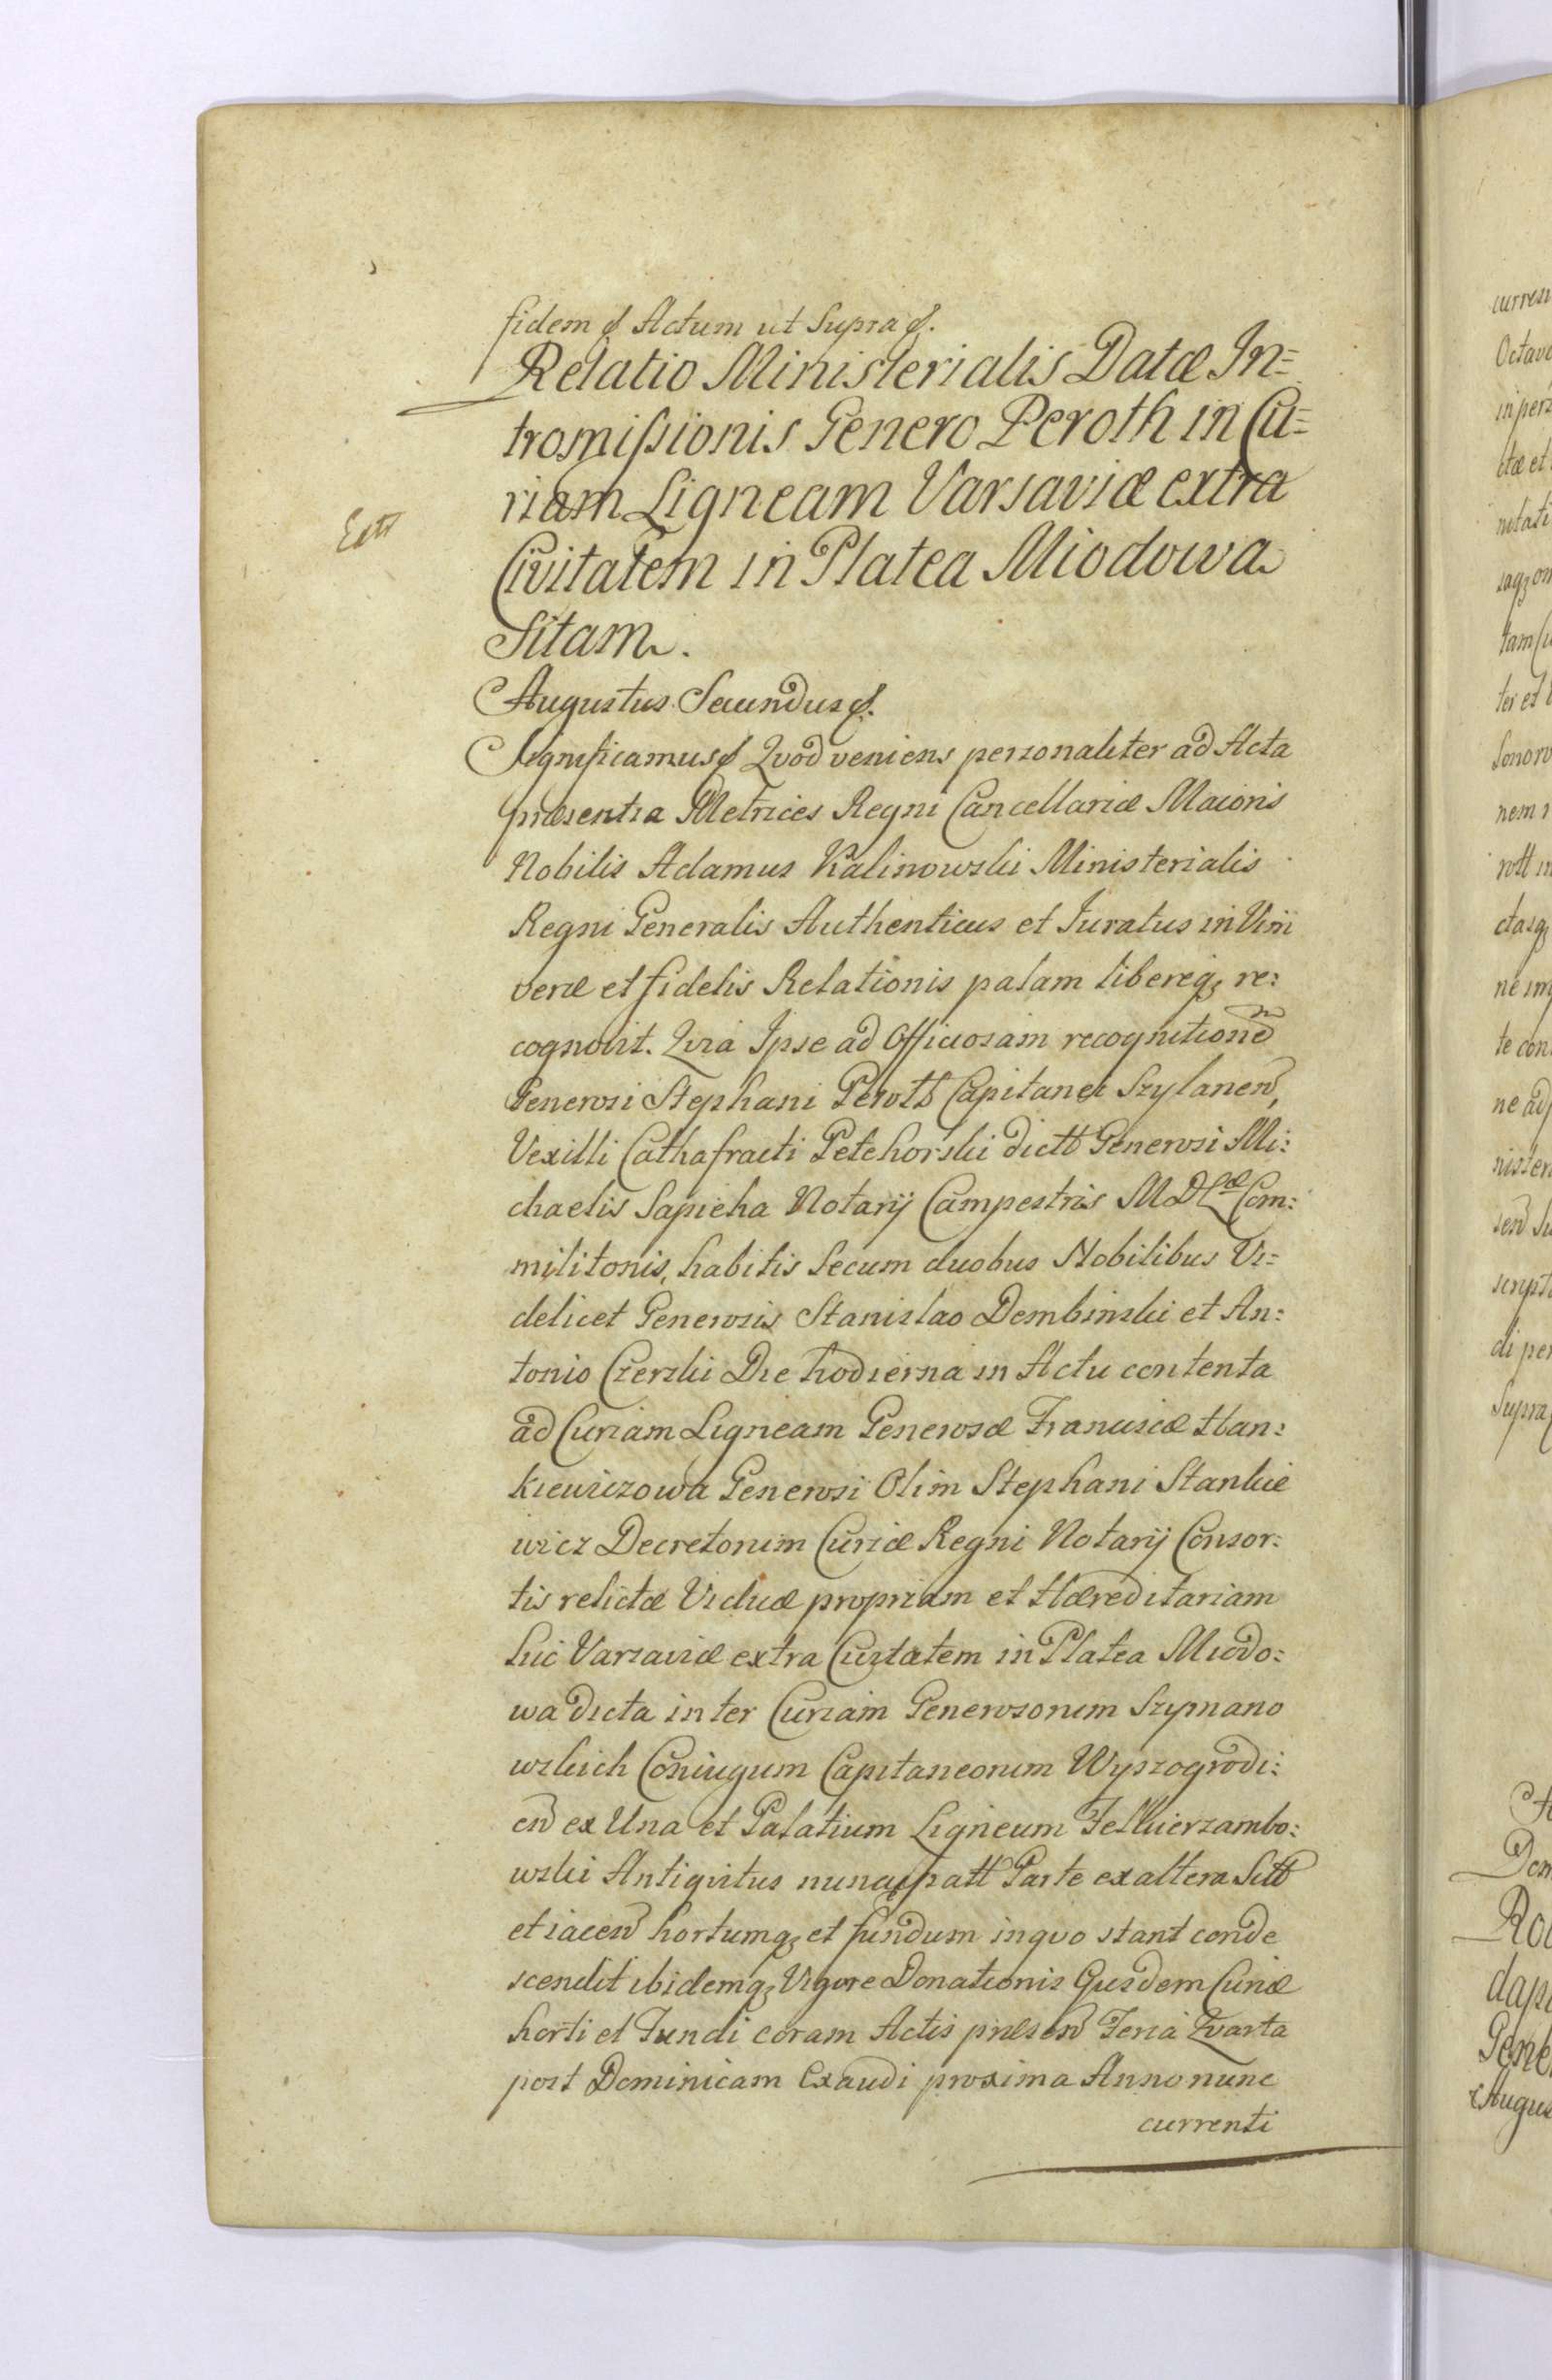 fidem ꝭ Actum ut Supra ꝭ.
Relatio Ministerialis Datæ In=
tromißionis Genero Peroth in Cu=
riam Ligneam Varsaviæ extra
Civitatem in Platea Miodowa
Sitam.
Extt
Augustus Secundus ꝭ.
Significamus ꝭ Qvod veniens personaliter ad Acta
præsentia Metrices Regni Cancellariæ Maioris
Nobilis Adamus Kalinowski Ministerialis
Regni Generalis Authenticus et Juratus in Vim
veræ et fidelis Relationis palam libereqꝫ re:
cognovit. Qvia Ipse ad Officiosam recognitionē
Generosi Stephani Peroth Capitanei Szylanen,
Vexilli Cathafracti Petehorski dictt Generosi Mi:
chaelis Sapieha Notarij Campestris MDLæ Com:
militonis, habitis Secum duobus Nobilibus Vi=
delicet Generosis Stanislao Dembinski et An:
tonio Czerski Die hodierna in Actu contenta
ad Curiam Ligneam Generosæ Franciscæ Stan:
kiewiczowa Generosi Olim Stephani Stankie
wicz Decretorum Curiæ Regni Notarij Consor:
tis relictæ Viduæ propriam et Hæreditariam
hic Varsaviæ extra Civitatem in Platea Miodo:
wa dicta inter Curiam Generosorum Szymano
wskich Coniugum Capitaneorum Wyszogrodi:
en ex Una et Palatium Ligneum Felkierzambo:
wski Antiqvitus nuncupatt Parte ex altera Sitt
et iacen hortumqꝫ et fundum in qvo stant conde
scendit ibidemqꝫ Vigore Donationis Ejusdem Curiæ
horti et Fundi coram Actis præsen Feria Qvarta
post Dominicam Exaudi proxima Anno nunc
currenti